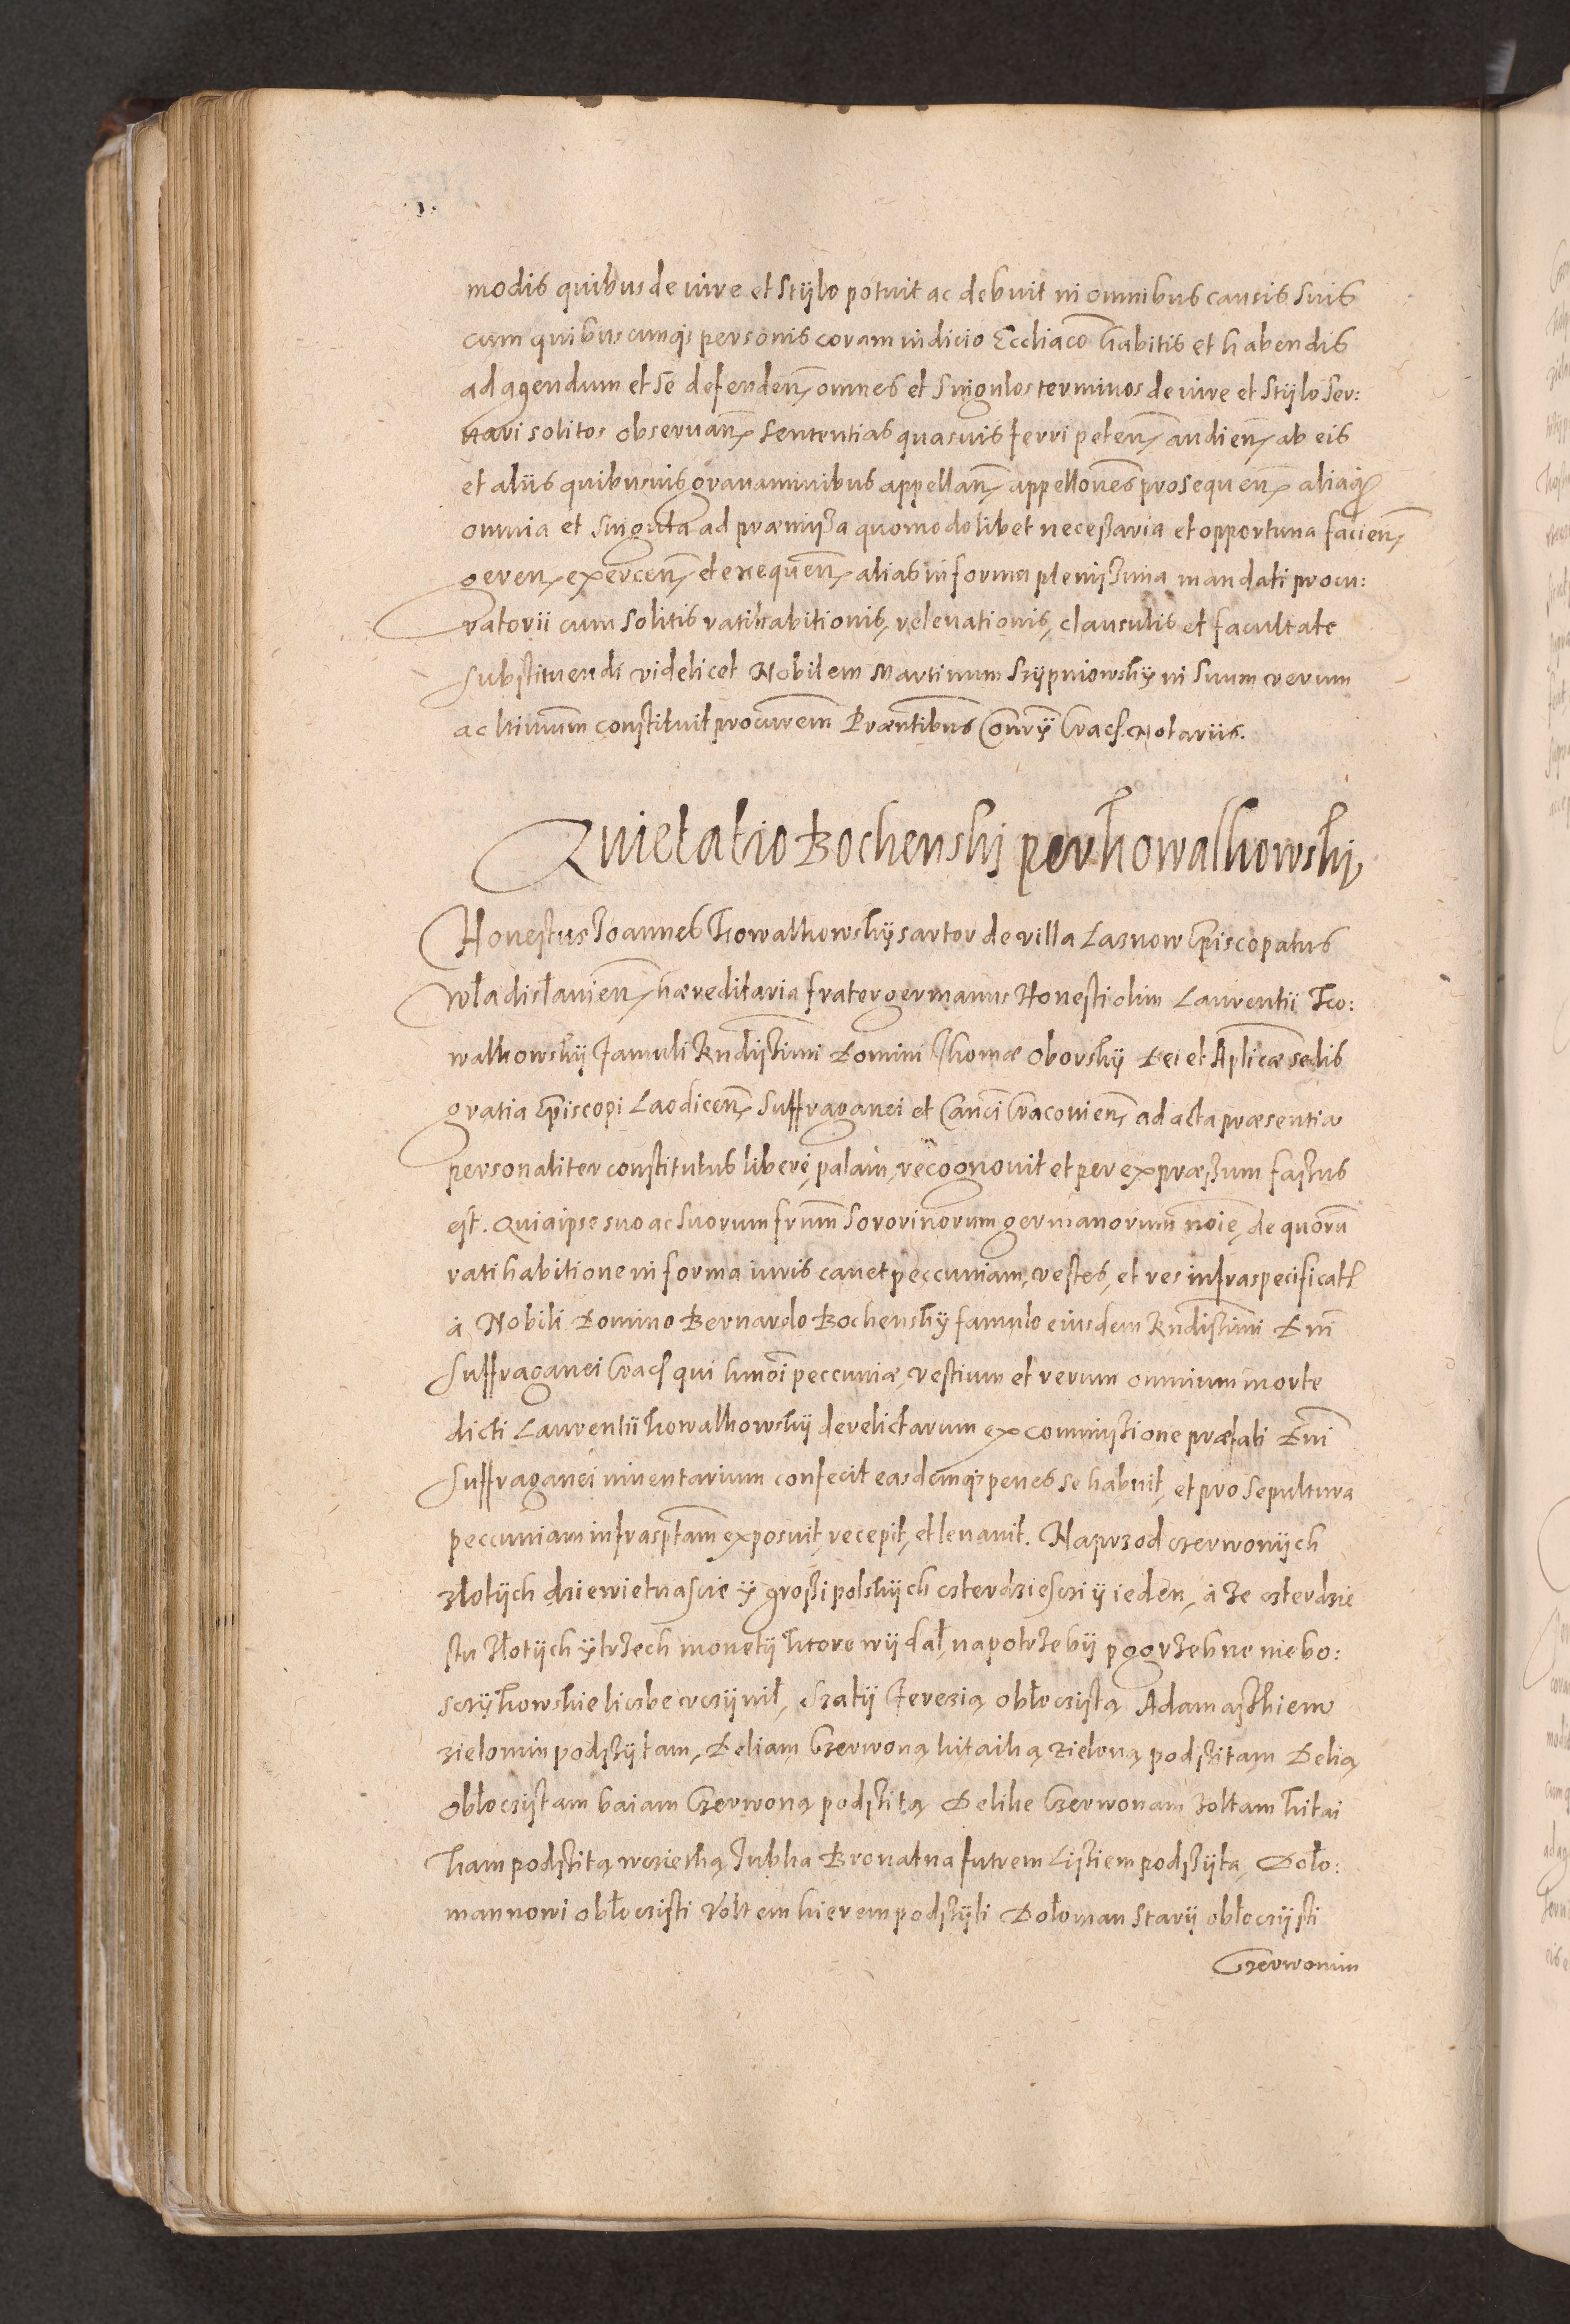 modis quibus de iure et stÿlo potuit ac debuit in omnibus causis suis
cum quibuscunq₃ personis coram iudicio Eccliaco habitis et habendis
ad agendum et se defenden̄ omnes et singulos terminos de iure et stÿlo ser:
uari solitos obseruan̄ sententias quasuis ferri peten̄ audien̄ ab eis
et aliis quibusuis grauaminibus appellan̄ appellōnes prosequen̄ aliaq₃
omnia et singula ad præmissa quomodolibet necessaria et opportuna facien̄
geren̄ exercen̄ et exequen̄ alias in forma plenissima mandati procu:
ratorii cum solitis ratihabitionis, releuationis, clausulis et facultate
substituendi videlicet Nobilem Martinum Szÿpniowskÿ in suum verum
ac ltimum constituit procurem Præntibus Conrÿ Crac. Notariis.
Quietatio Bochenski per Kowalkowski
Honestus Joannes Kowalkowskÿ sartor de villa Lasnow Episcopatus
Władisłauien̄ hæreditaria frater germanus Honesti olim Laurentii Ko:
walkowskÿ famuli Rndissimi Domini Thomæ Oborskÿ Dei et Aplicæ sedis
gratia Episcopi Laodicen̄ Suffraganei et Canci Cracouien̄ ad acta præsentia
personaliter constitutus liberè, palam, recognouit et per expræssum fassus
est. Quia ipse suo ac suorum frum sororinorum germanorum noīe, de quorū
ratihabitione in forma iuris cauet peccuniam, vestes, et res infraspecificat
à Nobili Domino Bernardo Bochenskÿ famulo eiusdem Rndissimi Dni
Suffraganei Crac qui hmoi peccuniæ, vestium et rerum omnium morte
dicti Laurentii Kowalkowskÿ derelictarum ex commissione præfati Dni
Suffraganei inuentarium confecit easdemq₃ penes se habuit, et pro sepultura
peccuniam infrasptam exposuit, recepit, et leuauit. Naprzod czerwonÿch
złotÿch dziewietnascie ÿ groszi polskÿch czterdziesczi ÿ ieden, à ze czterdzie
stu złotÿch ÿ trzech monetÿ ktore wÿdał, na potrzebÿ pogrzebne niebo:
sczÿkowskie liczbe vczÿnił, Szatÿ ferezią obłoczistą Adamaszkiem
zielonim podszÿtam, Deliam Czerwoną kitaiką zieloną podszitam Delią
obłoczistam baiam Czerwoną podszitą Delike Czerwonam zołtam kitai
kam podszitą, Jubka Bronatna futrem Liszięm podszÿta, Doło:
mannowi obłoczisti podszÿti Dołoman starÿ obłoczÿsti
Czerwonim